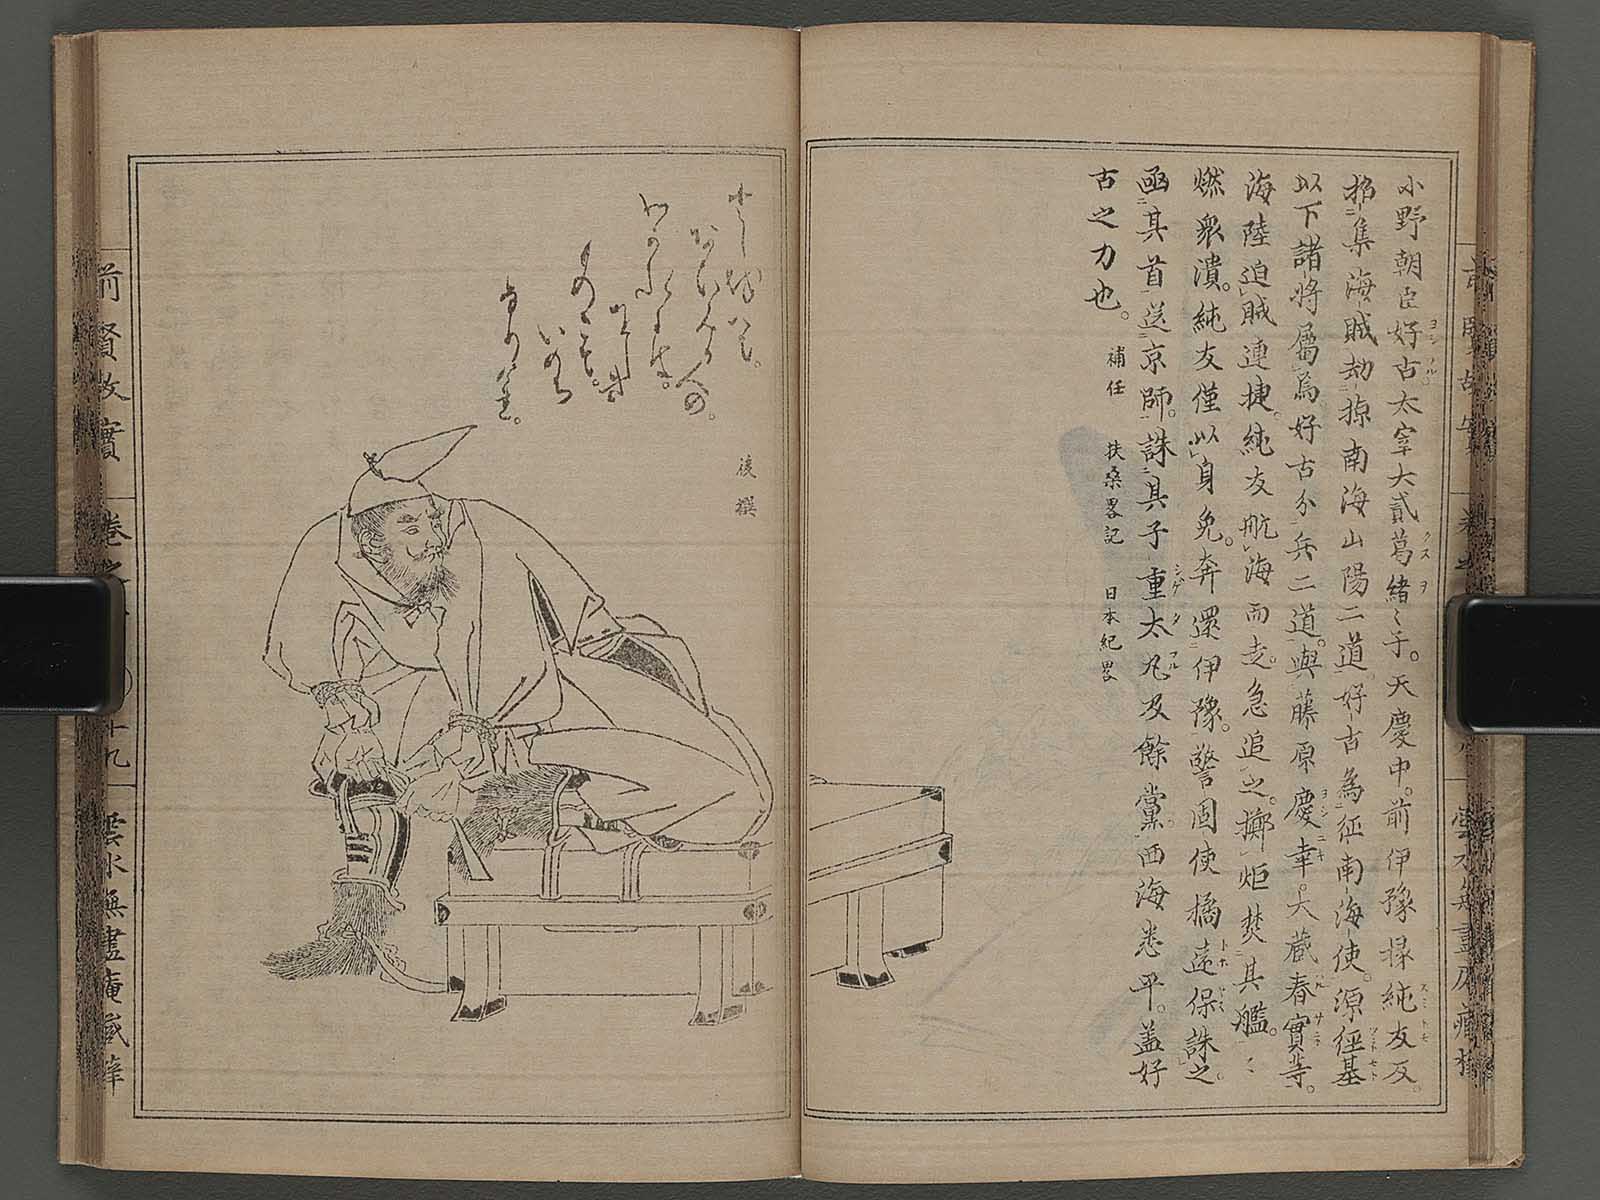 小野朝臣好古太宰大貳葛緒之子。天慶中。前伊豫掾純友反。
招集海賊劫掠南海山陽二道。好古為征南海使。源經基
以下諸將屬焉。好古分兵二道。與藤原慶幸。大藏春實等。
海陸迫賊連捷。純友航海而走。急追之。擲炬焚其艦。々
燃衆潰。純友僅以身免。奔還伊豫。警固使橘遠保誅之。
函其首送京師。誅其子重太丸及餘黨。西海悉平。蓋好
古之力也。 補任 扶桑畧記 日本紀畧
いのち
なりけれ。
後撰
前賢故實 卷之 十九 雲水無盡庵藏梓